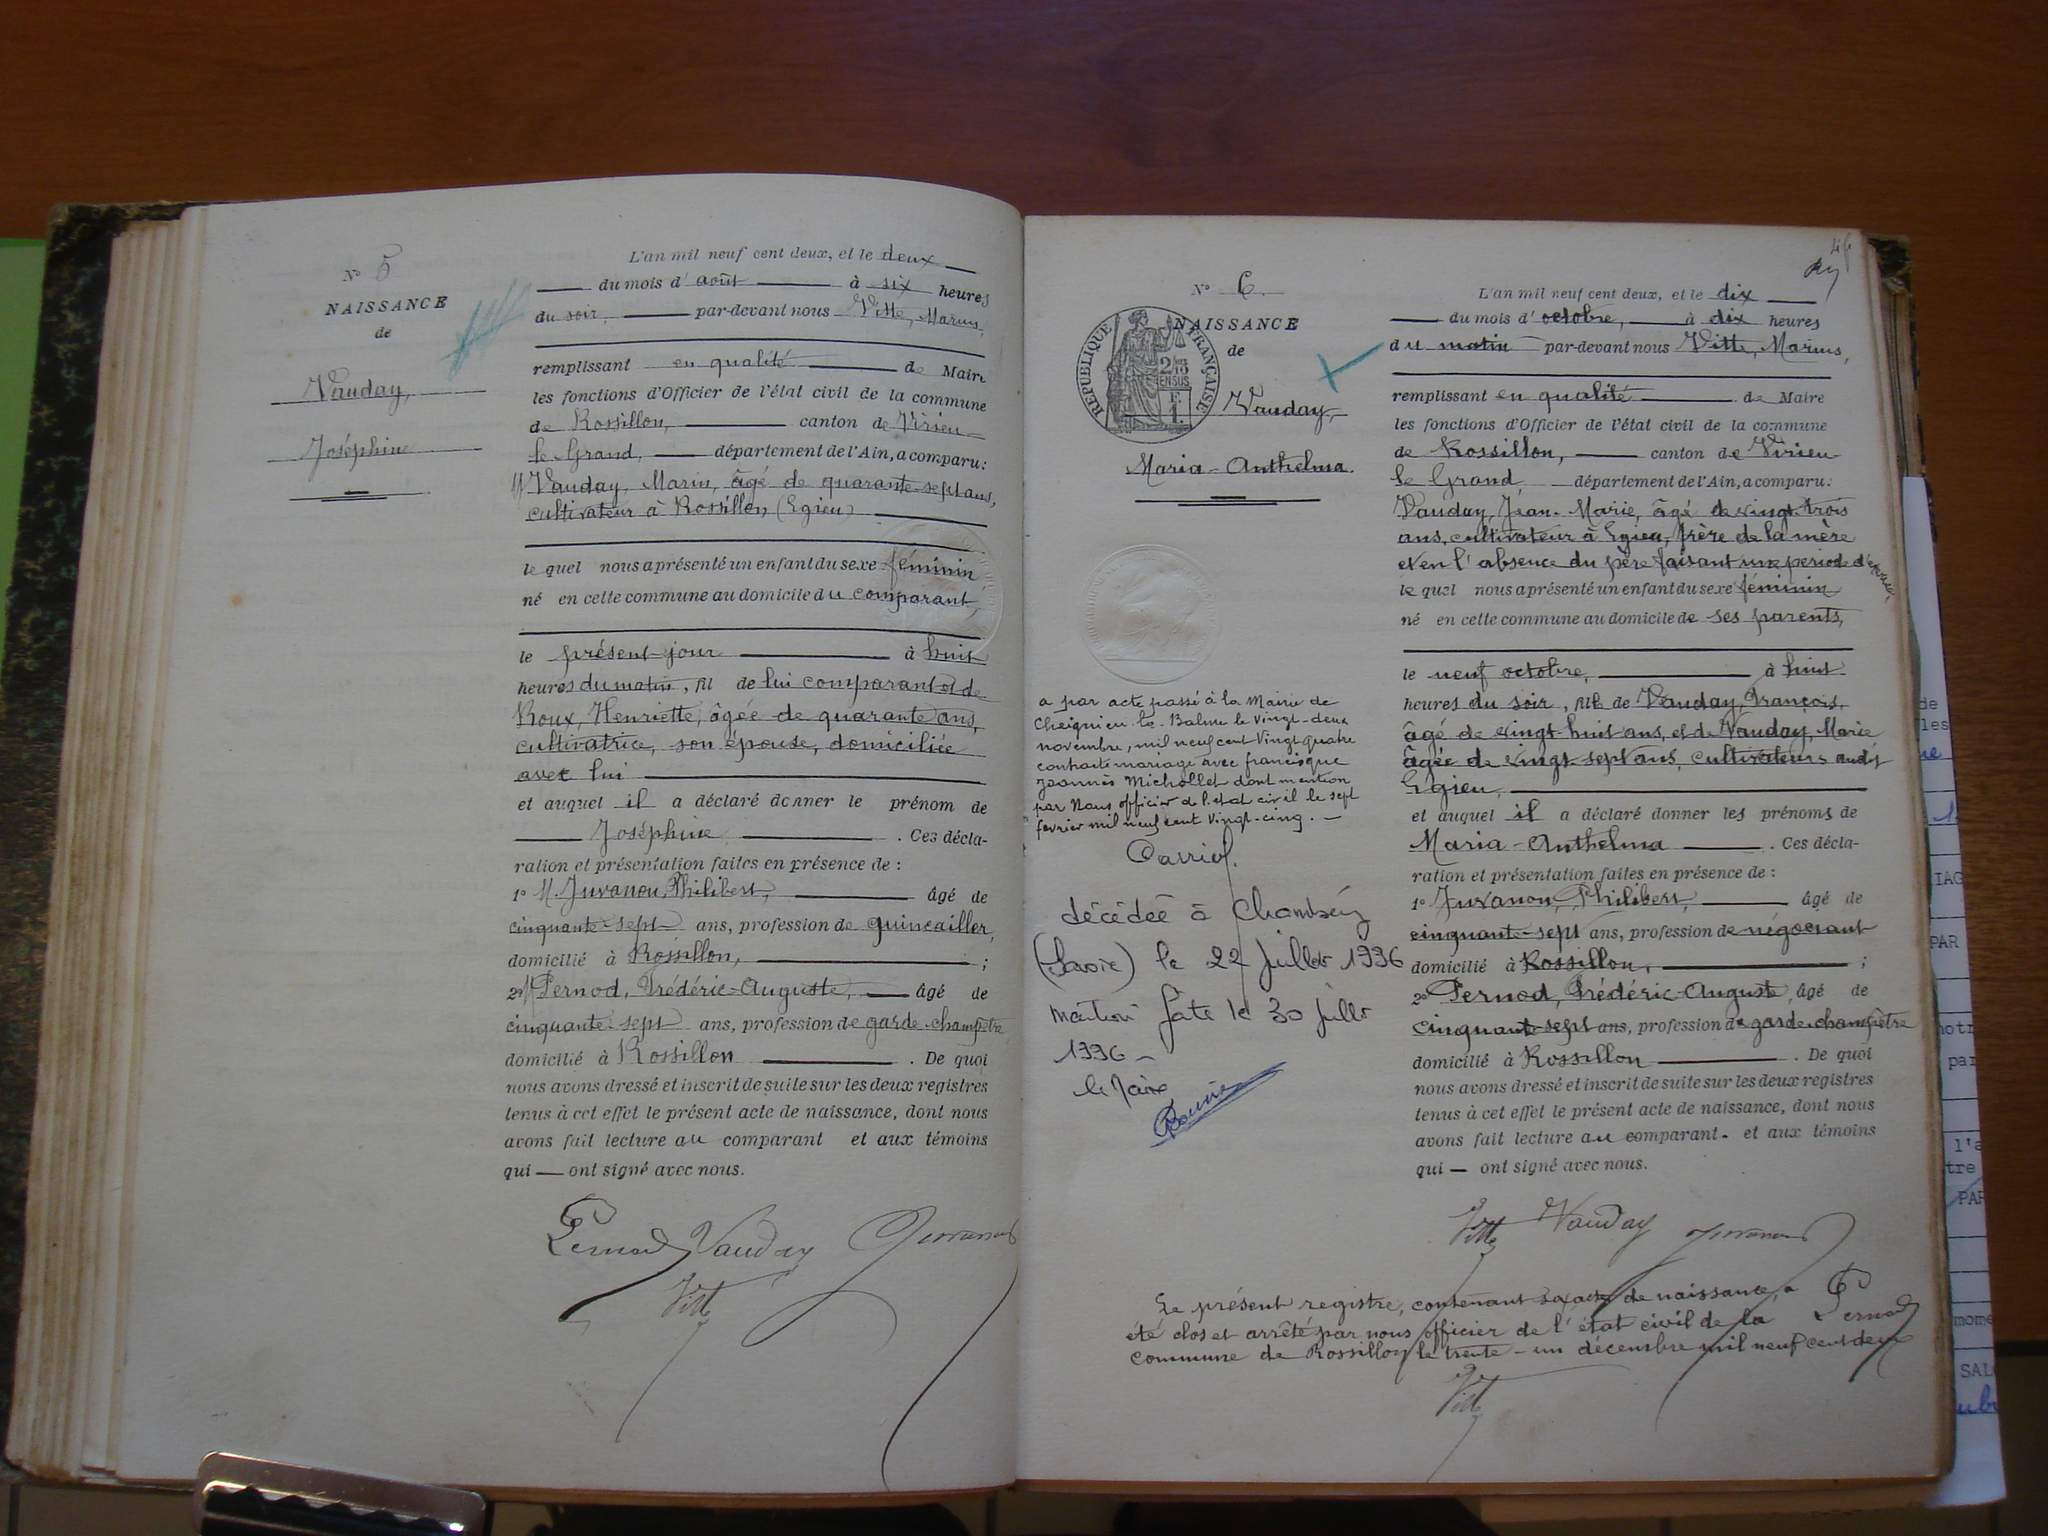 N° 5
NAISSANCE
de
Vauday,
Joséphine
L'an mil neuf cent deux, et le deux
du mois d'août à six heures
du soir, par-devant nous Vitte, Marius,
remplissant en qualité de Maire
les fonctions d'Officier de l'état civil de la commune
de Rossillon, canton de Virieu-
le Grand, département de l'Ain, a comparu:
Vauday, Marin, âgé de quarante-sept ans,
cultivateur à Rossillon (Egieu)
le quel nous a présenté un enfant du sexe féminin
né en cette commune au domicile du comparant,
le présent jour à huit
heures du matin, fil de lui comparant et de
Roux, Henriette, âgée de quarante ans,
cultivatrice, son épouse, domiciliée
avec lui
et auquel il a déclaré donner le prénom de
Joséphine. Ces décla-
ration et présentation faites en présence de :
1° M. Juvanon, Philibert, âgé de
cinquante-sept ans, profession de quincailler,
domicilié à Rossillon, ;
2° Pernod, Frédéric-Auguste, âgé de
cinquante-sept ans, profession de garde-champêtre
domicilié à Rossillon. De quoi
nous avons dressé et inscrit de suite sur les deux registres
tenus à cet effet le présent acte de naissance, dont nous
avons fait lecture au comparant et aux témoins
qui — ont signé avec nous.
Pernod Vauday Juvanon
Vitte
N° 6.
NAISSANCE
de
RÉPUBLIQUE FRANÇAISE
Vauday,
Maria-Anthelma.
a par acte passé à la Mairie de
Cheignieu-la-Balme le vingt-deux
novembre, mil neuf cent vingt quatre
contracté mariage avec francisque
Joannès Michollet dont mention
par Nous officier de l'état civil le sept
fevrier mil neuf cent vingt-cinq. —
décédée à Chambéry
(Savoie) le 22 juillet 1996
mention faite le 30 juillet
1996 —
le Maire
L'an mil neuf cent deux, et le dix
du mois d'octobre, à dix heures
du matin par-devant nous Vitte, Marius,
remplissant en qualité de Maire
les fonctions d'Officier de l'état civil de la commune
de Rossillon, canton de Virieu-
le Grand, département de l'Ain, a comparu:
Vauday, Jean-Marie, âgé de vingt-trois
ans, cultivateur à Egieu, frère de la mère
et en l'absence du père faisant une période d'exercice,
le quel nous a présenté un enfant du sexe féminin
né en cette commune au domicile de ses parents,
le neuf octobre, à huit
heures du soir, fille de Vauday, François,
âgé de vingt-huit ans, et de Vauday, Marie
âgée de vingt-sept ans, cultivateurs audit
Egieu,
et auquel il a déclaré donner les prénoms de
Maria-Anthelma. Ces décla-
ration et présentation faites en présence de :
1° Juvanon, Philibert, âgé de
cinquante-sept ans, profession de négociant
domicilié à Rossillon, ;
2° Pernod, Frédéric-Auguste, âgé de
cinquante-sept ans, profession de garde-champêtre
domicilié à Rossillon. De quoi
nous avons dressé et inscrit de suite sur les deux registres
tenus à cet effet le présent acte de naissance, dont nous
avons fait lecture au comparant. et aux témoins
qui — ont signé avec nous.
Vitte Vauday Juvanon
Pernod
Le présent registre, contenant six actes de naissance, a
été clos et arrêté par nous officier de l'état civil de la
commune de Rossillon le trente-un décembre mil neuf cent deux
Vitte